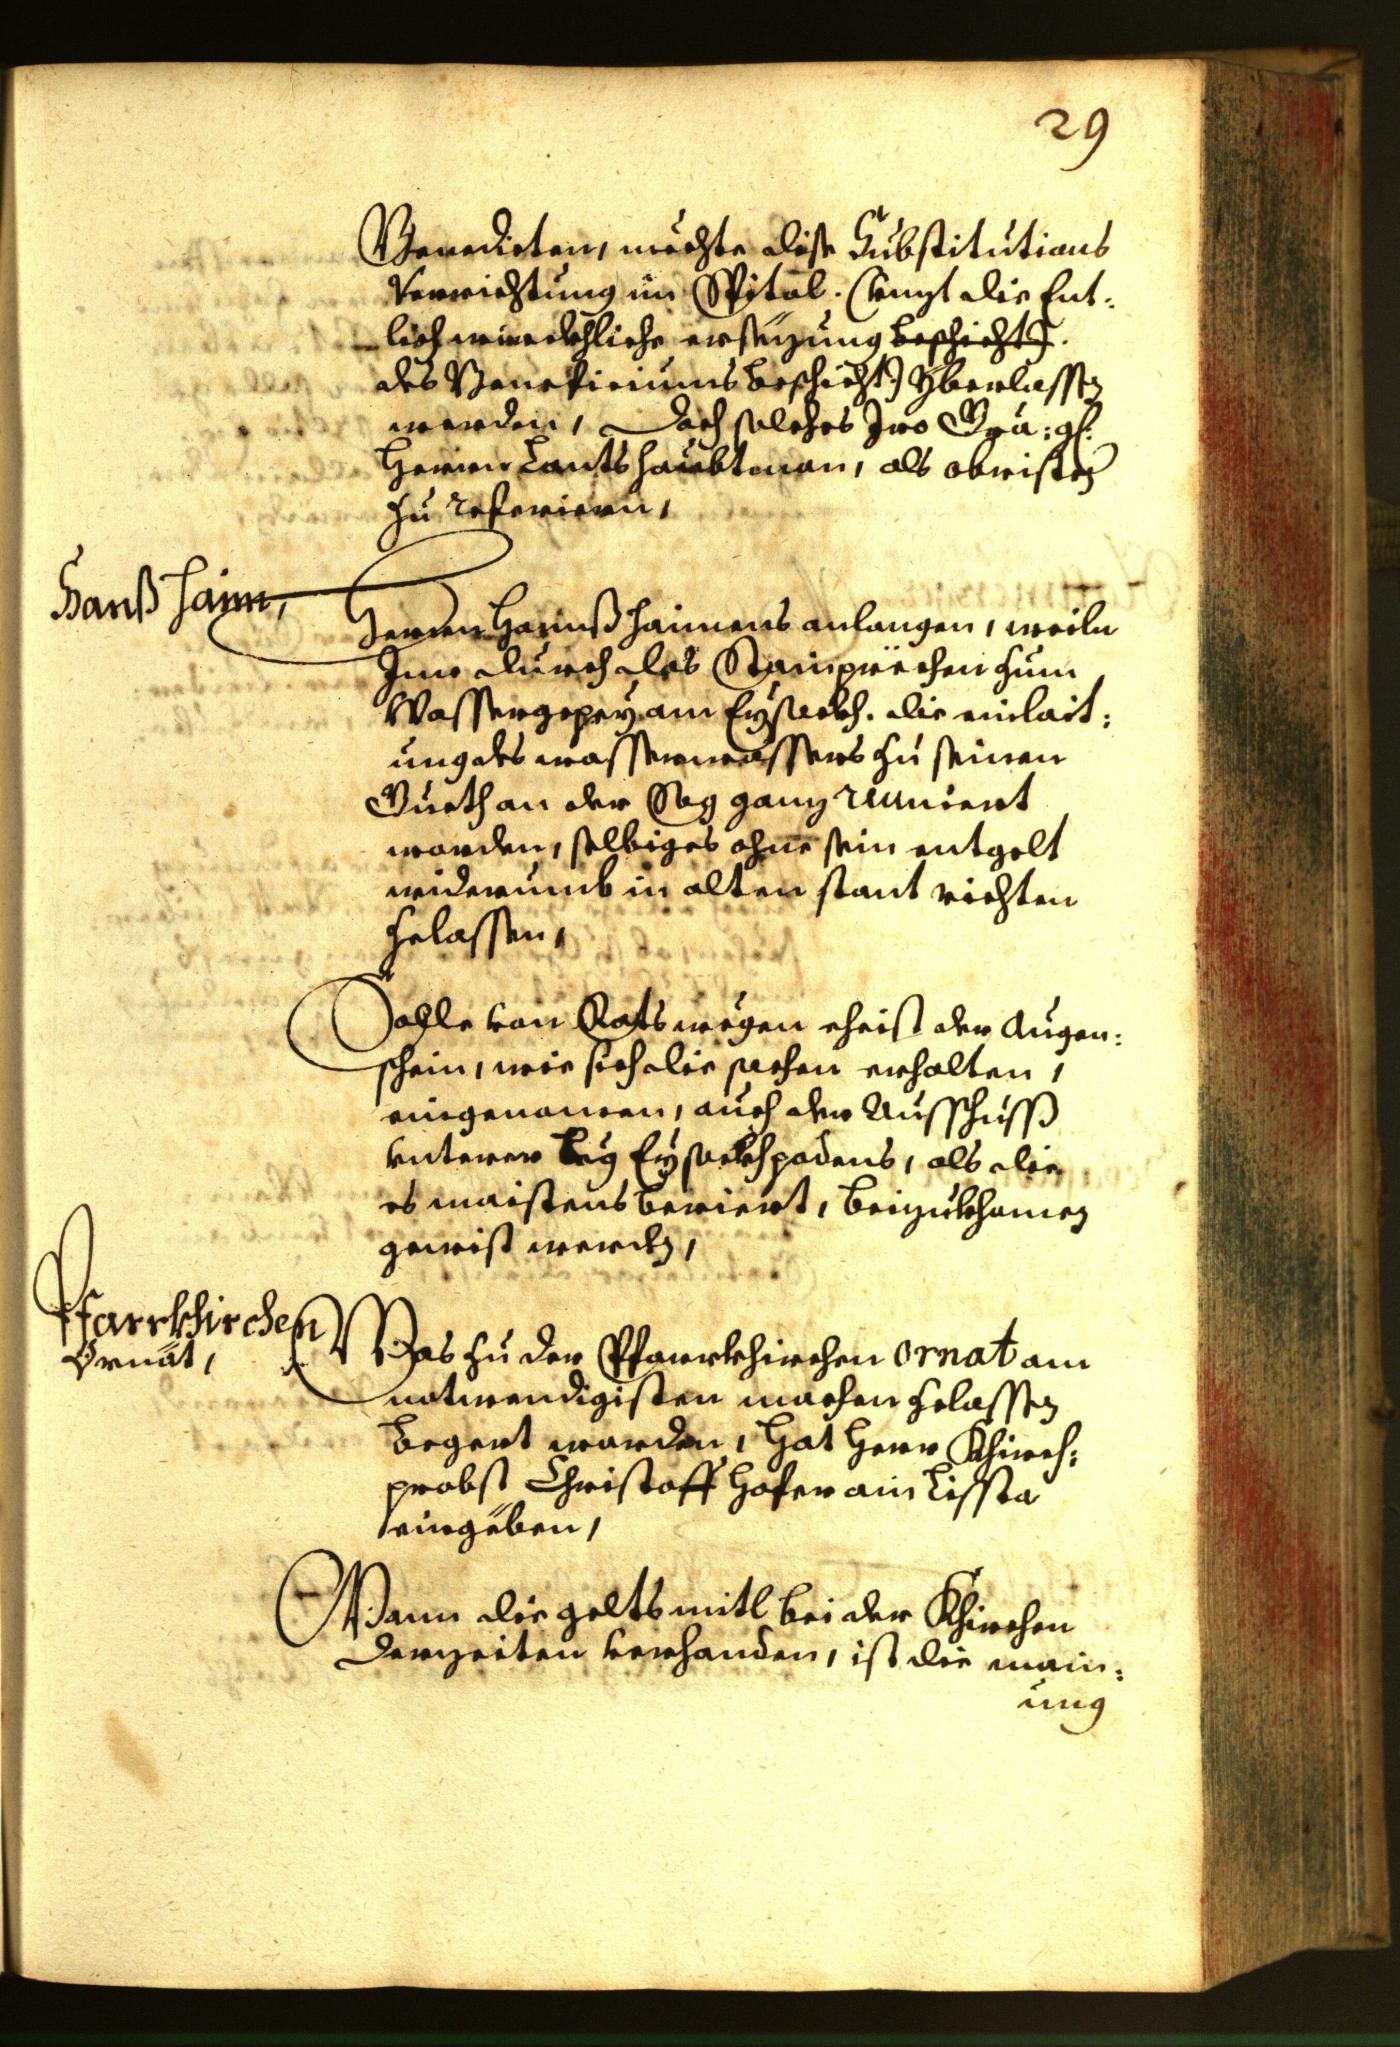 29
Benedicten, mechte dise Substitutions
verrichtung im Spital. (biß die Ent-
lich würckhliche ersezung beschicht).
des Beneficiums beschicht) yberlassen
werden, Doch solches Iro Gna: gl:
Herrn Lantshaubtman, als obristen
zu referiern,
Hanß Haim,
Herrn Hannß Haimens anlangen, weiln
Ime durch des Stainprechen zum
Wassergepey am Eysackh. die einlait-
ung des wasserwassers zu seinen
Gueth an der Sag ganz ruiniert
worden, selbiges ohne sein entgelt
widerumb in alten stant richten
zelassen,
Solle von Rats wegen eheist der Augen-
schein, wie sich die sachen erhalten,
eingenomen, auch der Ausschuss
unterer Leg Eysackhpodens, als die
es maistens beriert, beizukhomen
gewist werden,
Pfarrkhirchen
Ornat,
Was zu der Pfarrkhirchen ornat am
notwendigisten machen zelassen
begert worden, hat Herr Khirch-
probst Christoff Hofer ain Lissta
eingeben,
Wann die gelts mitl bei der Khirchen
derzeiten verhanden, ist die main-
ung